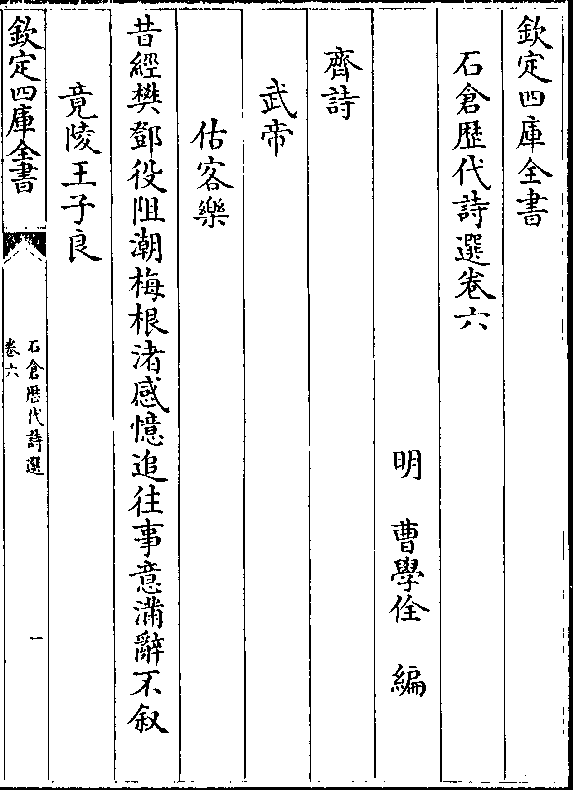 欽定四庫全書
石倉歴代詩選卷六
明 曹學佺 編
齊詩
武帝
估客樂
昔經樊鄧役阻潮梅根渚感憶追往事意滿辭不叙
竟陵王子良
欽定四庫全書
石倉歴代詩選
卷六
一